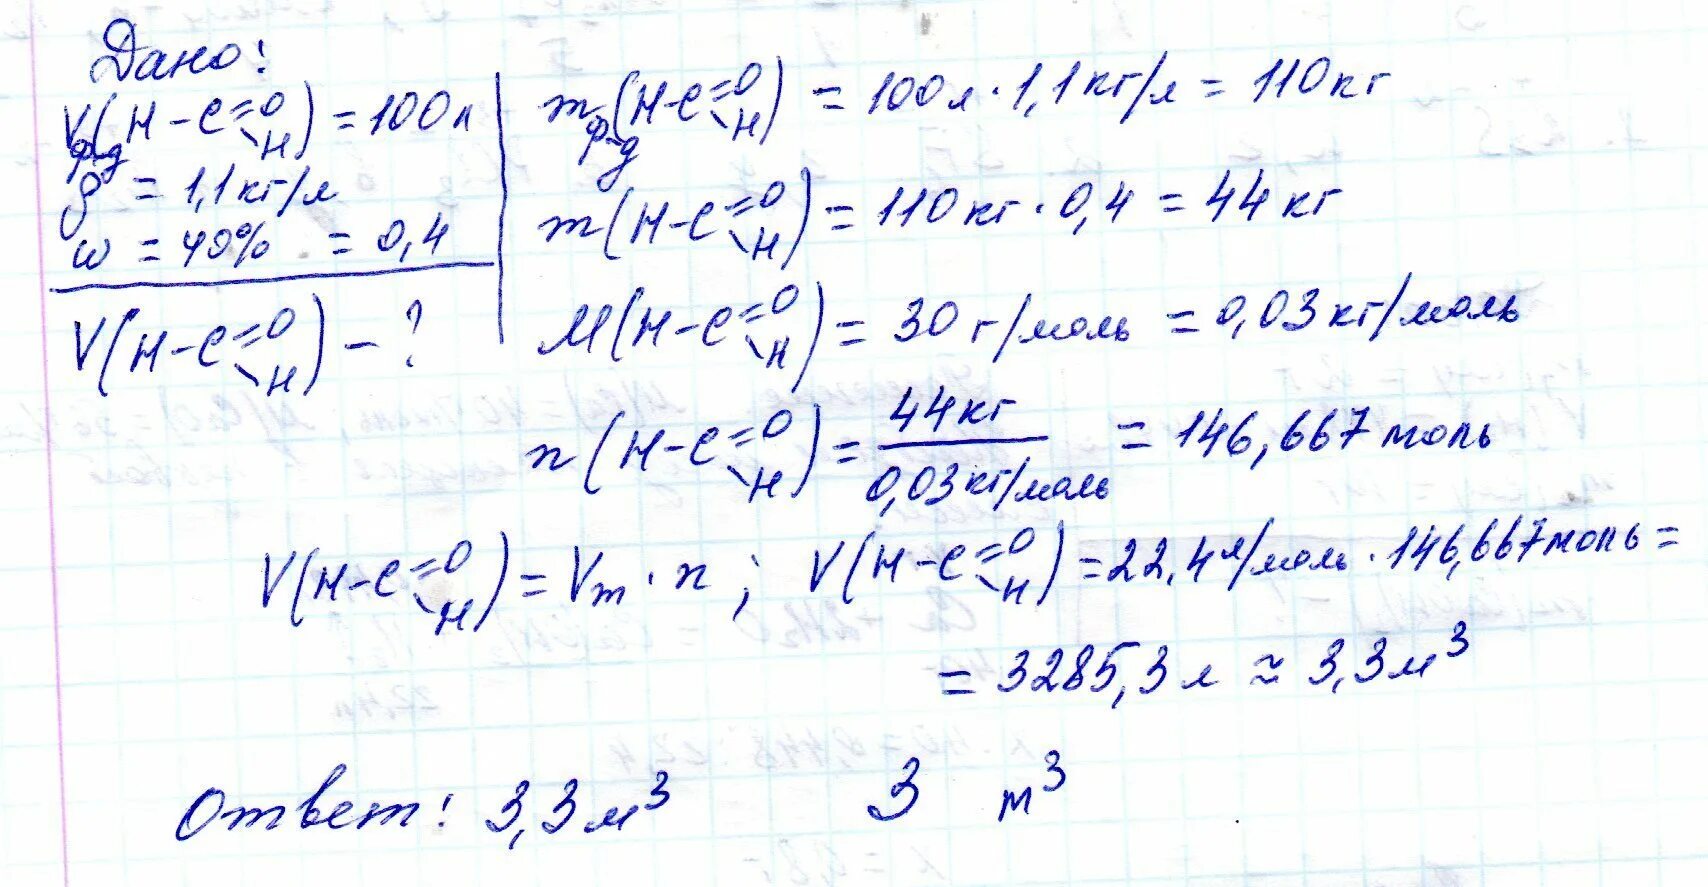 Дано:
V р-д (H-C=O H) = 100л
ρ = 1,1кг/л
w = 40% = 0,4
V(H-C=O H) - ?
m р-д (H-C=O H) = 100л · 1,1кг/л = 110кг
m(H-C=O H) = 110кг · 0,4 = 44кг
M(H-C=O H) = 30г/моль = 0,03кг/моль
n(H-C=O H) = 44кг / 0,03кг/моль = 146,667 моль
V(H-C=O H) = Vm · n ; V(H-C=O H) = 22,4 л/моль · 146,667 моль =
= 3285,3 л ≈ 3,3 м³
Ответ: 3,3 м³ 3 м³